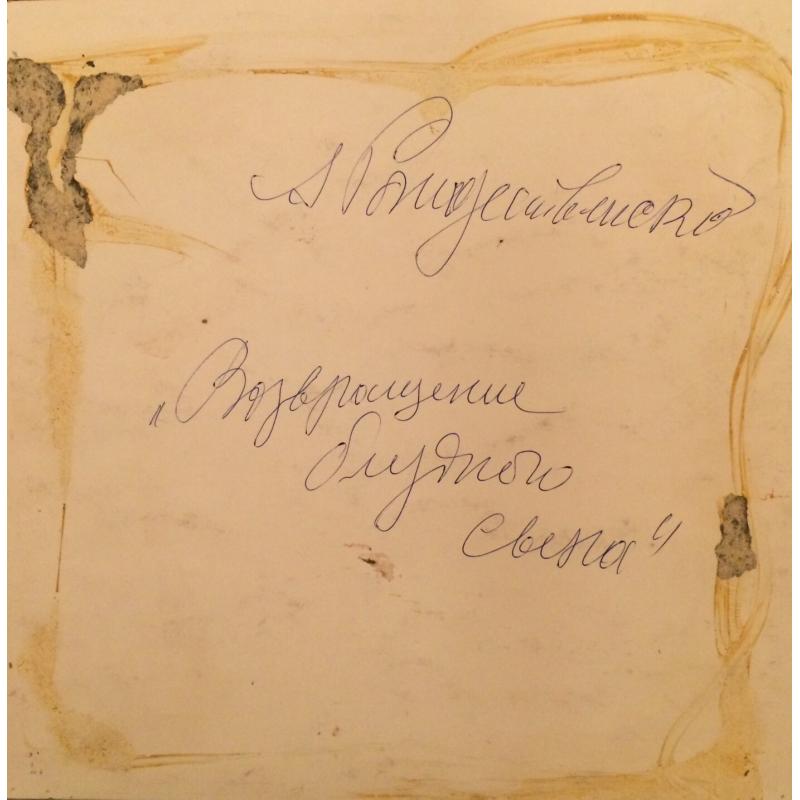 А Рождественский
„Возвращение
блудного
сына“